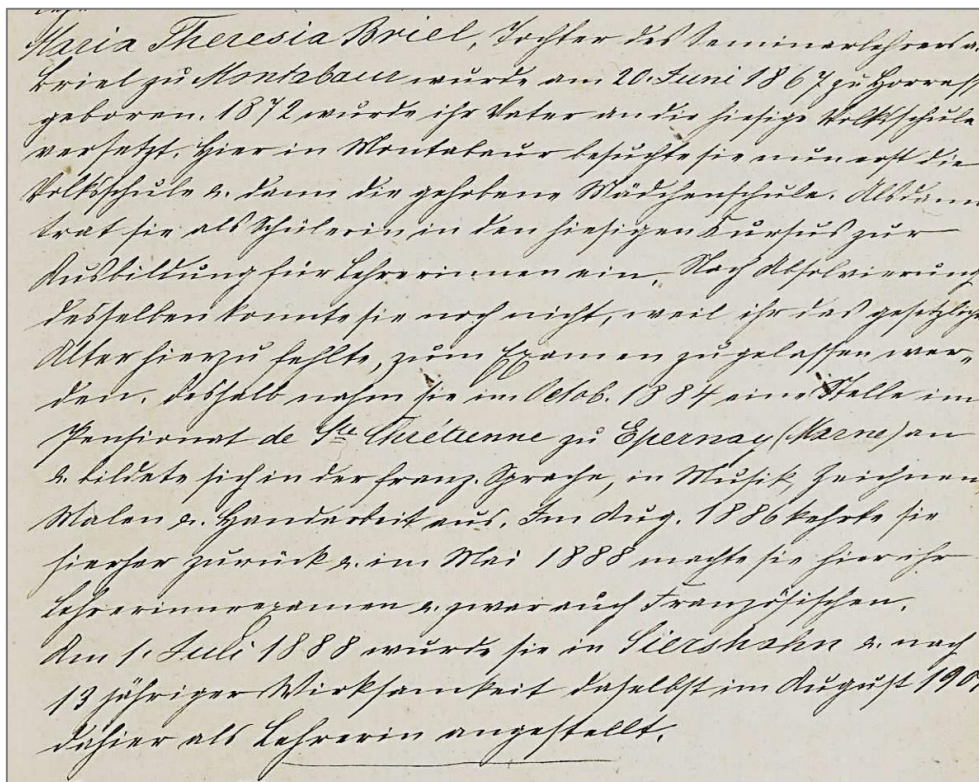 Maria Theresia Briel, Tochter des Seminarlehrers a.
Briel zu Montabaur wurde am 20. Juni 1867 zu Horres
geboren. 1872 wurde ihr Vater an die hiesige Volksschule
versetzt. Hier in Montabaur besuchte sie nun erst die
Volksschule u. dann die gehobene Mädchenschule. Alsdann
trat sie als Schülerin in den hiesigen Kursus zur
Ausbildung für Lehrerinnen ein. Nach Absolvierung
desselben konnte sie noch nicht, weil ihr das gesetzliche
Alter hierzu fehlte, zum Examen zugelassen wer-
den. Deshalb nahm sie im Octob. 1884 eine Stelle im
Pensionat de Ste Chrétienne zu Epernay (Marne) an
u. bildete sich in der franz. Sprache, in Musik, Zeichnen
Malen u. Handarbeit aus. Im Aug. 1886 kehrte sie
hierher zurück u. im Mai 1888 machte sie hier ihr
Lehrerinnexamen u. zwar auch Französischen.
Am 1. Juli 1888 wurde sie in Siershahn u. nach
13 jähriger Wirksamkeit daselbst im August 190
dahier als Lehrerin angestellt.